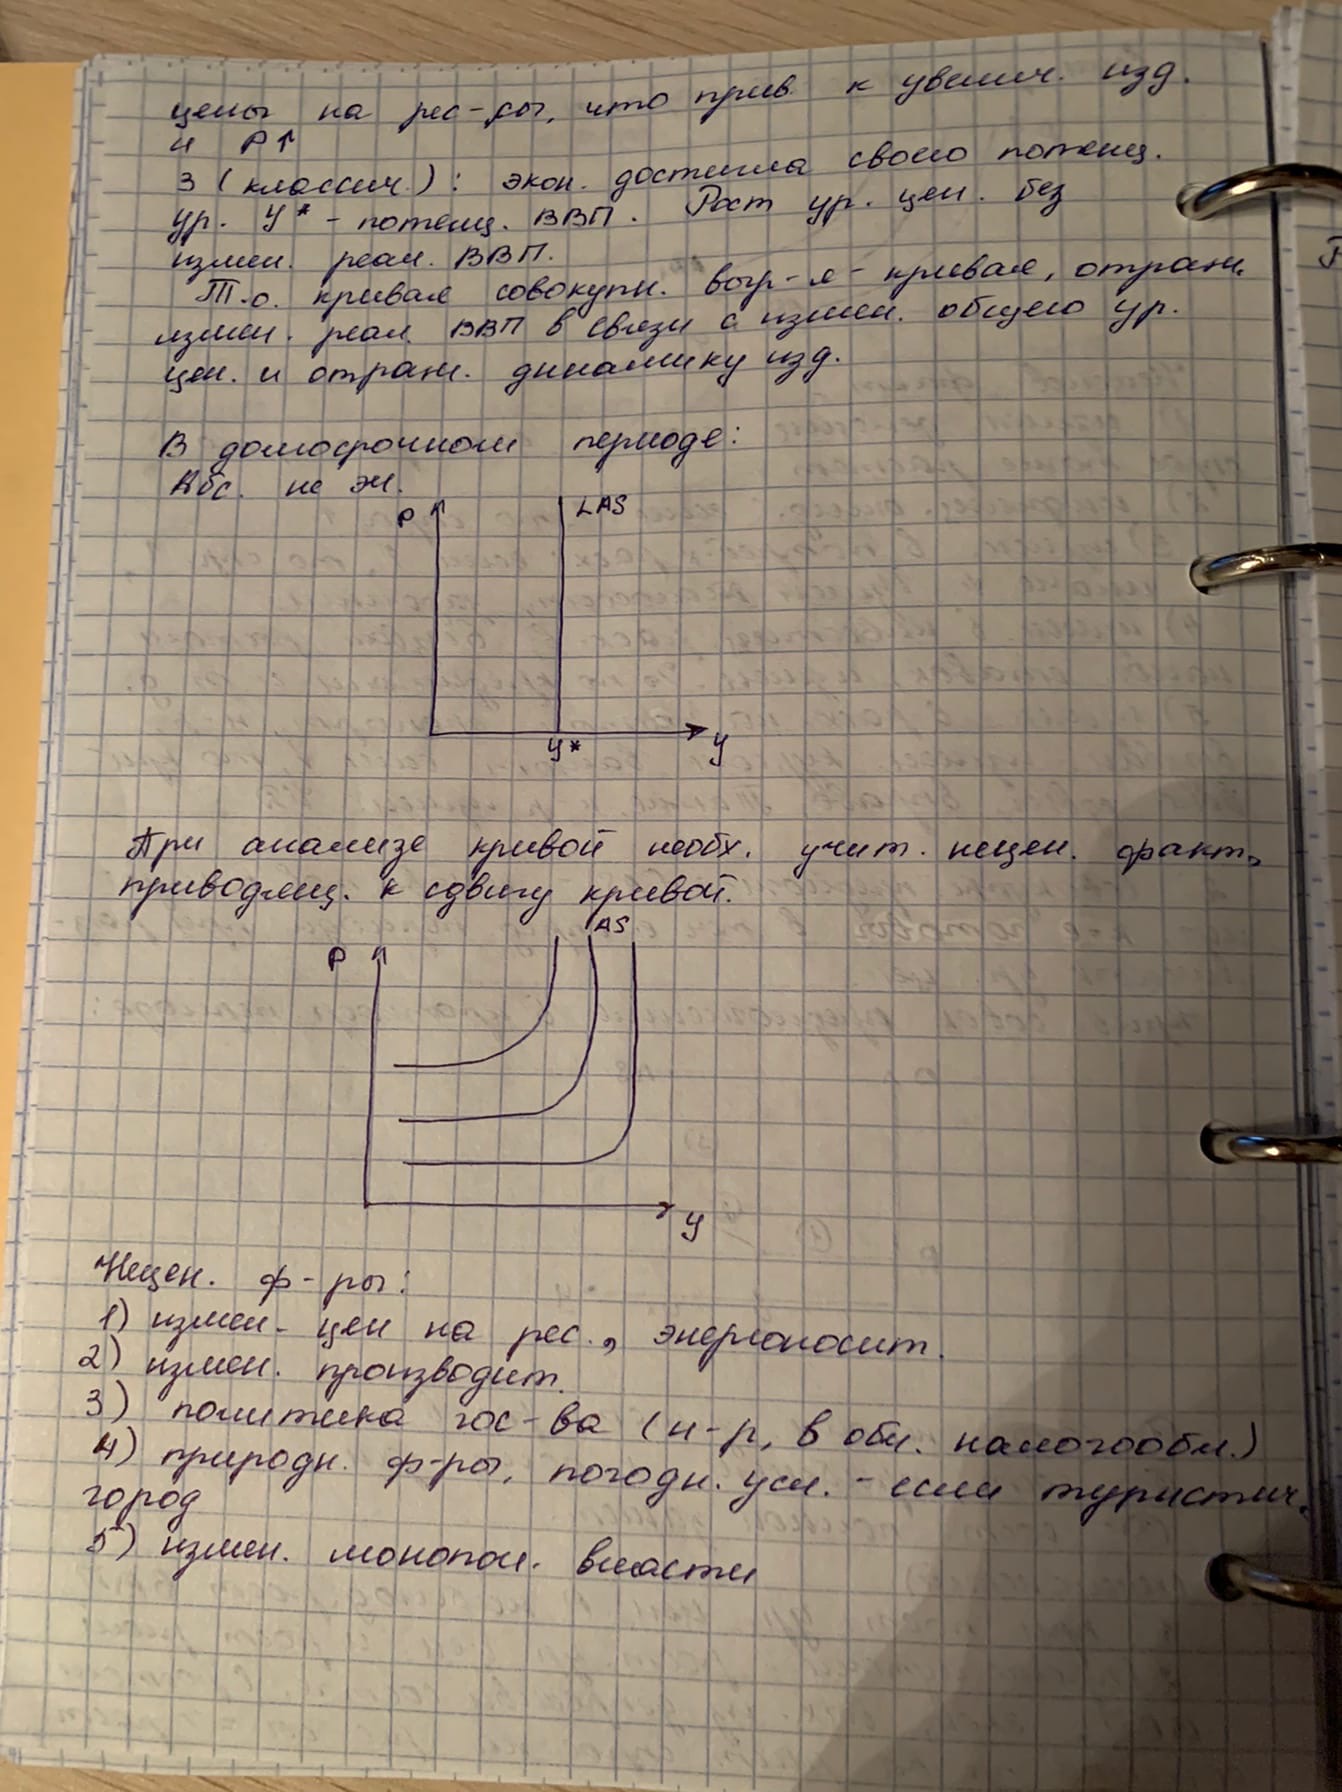 цены на рес-сы, что прив. к увелич. изд.
и P↑
3 (классич.): экон. достигла своего потенц.
ур. Y* - потенц. ВВП. Рост ур. цен. без
измен. реал. ВВП.
Т.о. кривая совокупн. выр-я - кривая, отраж.
измен. реал. ВВП в связи с измен. общего ур.
цен. и отраж. динамику изд.
В долгосрочном периоде:
Абс. не эл.
P
LAS
Y*
Y
При анализе кривой необх. учит. нецен. факт.,
приводящ. к сдвигу кривой.
AS
P
Y
Нецен. ф-ры:
1) измен. цен на рес., энергоносит.
2) измен. производит.
3) политика гос-ва (н-р, в обл. налогообл.)
4) природн. ф-ры, погодн. усл. - если туристич.
город
5) измен. монопол. власти